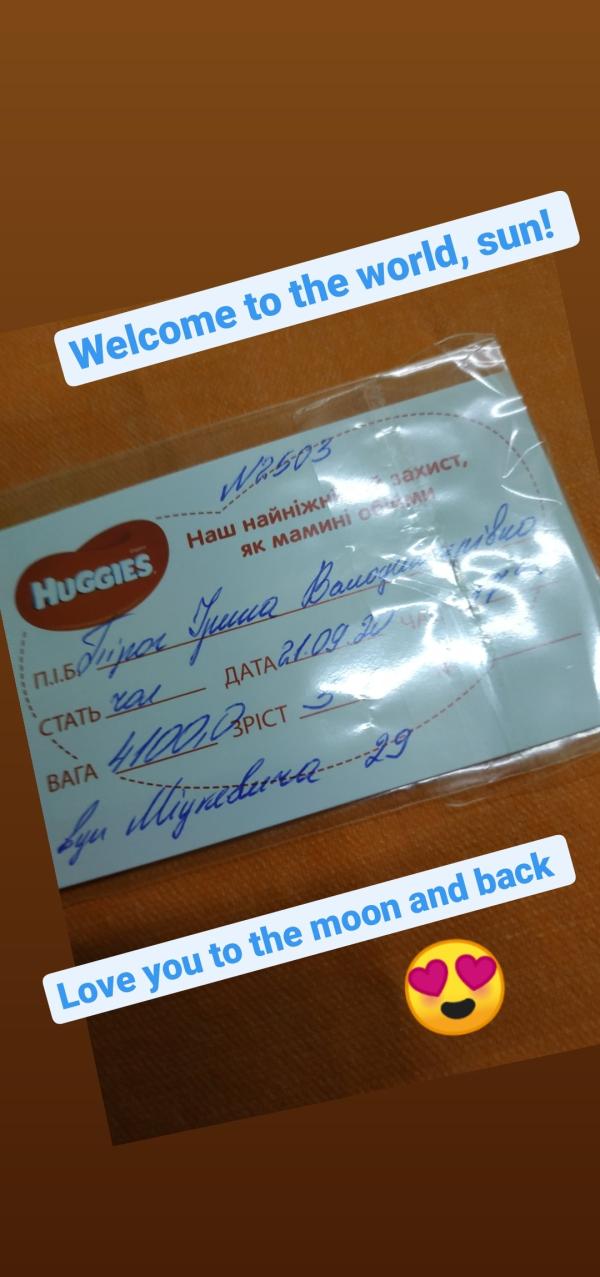 Welcome to the world, sun!
N2503
Наш найніжніший захист,
як мамині обійми
HUGGIES
П.І.Б. Пірог Ірина Володимирівна
СТАТЬ чол ДАТА 21.09.20 ЧАС
ВАГА 4100,0 ЗРІСТ 5
вул Міцкевича 29
Love you to the moon and back